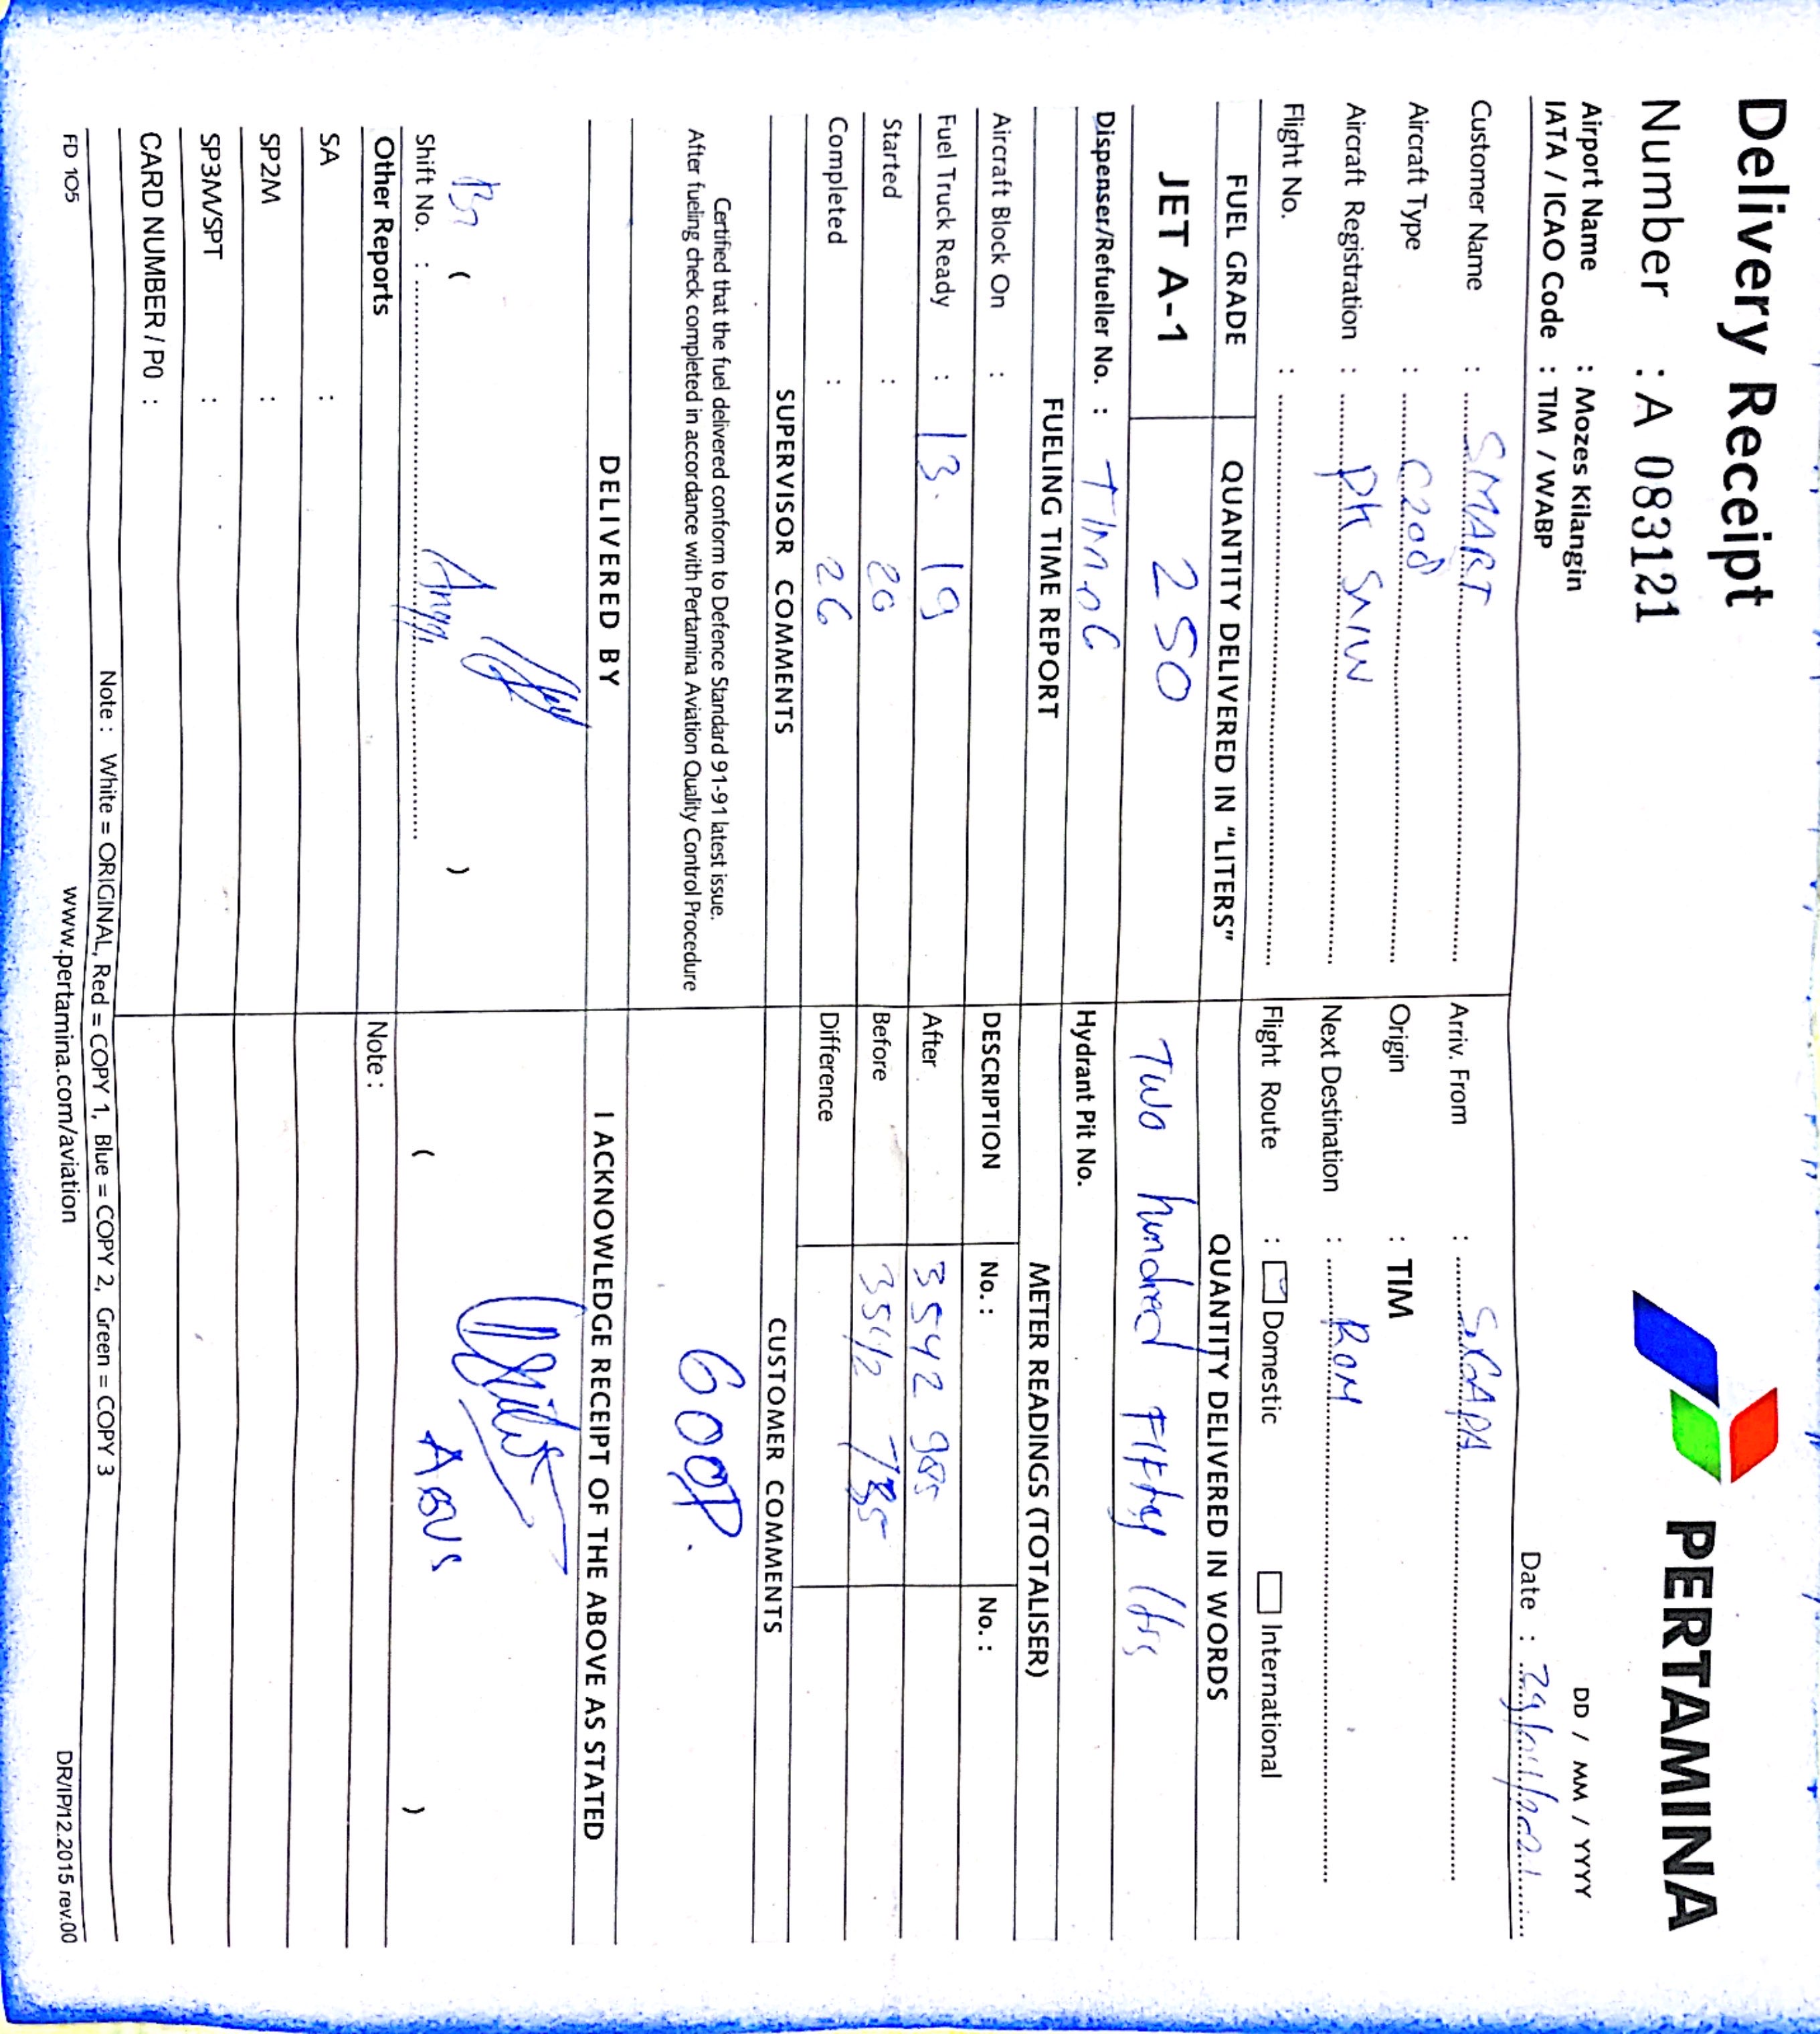 Delivery Receipt
PERTAMINA
Number : A 083121
Airport Name : Mozes Kilangin
IATA / ICAO Code : TIM / WABP
DD / MM / YYYY
Date :
Customer Name : SMART
Arriv. From :
Aircraft Type : C208
Origin : TIM
Aircraft Registration : PK
Next Destination : ROM
Flight No. :
Flight Route : Domestic International
FUEL GRADE QUANTITY DELIVERED IN "LITERS" QUANTITY DELIVERED IN WORDS
JET A-1 250 Two hundred Fifty
Dispenser/Refueller No. :
Hydrant Pit No.
FUELING TIME REPORT METER READINGS (TOTALISER)
Aircraft Block On :
DESCRIPTION No. : No. :
Fuel Truck Ready : 13. 19
After 3542 985
Started : 20
Before 3542 735
Completed : 26
Difference
SUPERVISOR COMMENTS CUSTOMER COMMENTS
Certified that the fuel delivered conform to Defence Standard 91-91 latest issue.
After fueling check completed in accordance with Pertamina Aviation Quality Control Procedure
GOOD.
DELIVERED BY I ACKNOWLEDGE RECEIPT OF THE ABOVE AS STATED
( )
( )
Shift No. :
AGUS
Other Reports
Note :
SA :
SP2M :
SP3M/SPT :
CARD NUMBER / PO :
Note : White = ORIGINAL, Red = COPY 1, Blue = COPY 2, Green = COPY 3
FD 105
www.pertamina.com/aviation
DR/IP/12.2015 rev.00